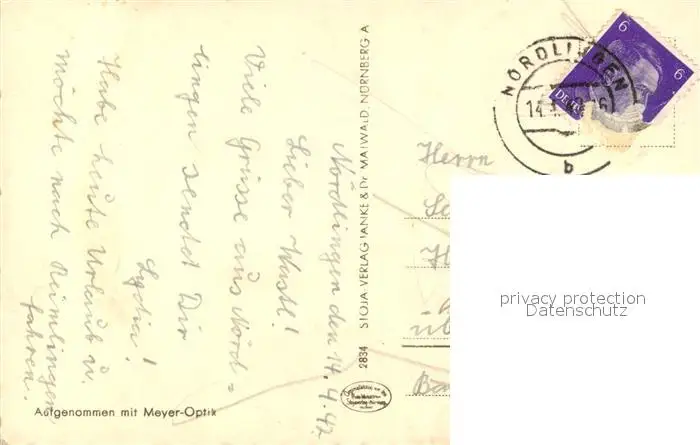 Nördlingen den 14.4.42
Lieber Wastl!
Viele Grüsse aus Nörd=
lingen sendet Dir
Lydia!
Habe heute Urlaub u.
möchte nach Reimlingen
fahren.
Aufgenommen mit Meyer-Optik
2834 STOJA-VERLAG JANKE & Dr. MAIWALD, NÜRNBERG A
NÖRDLINGEN
b
6
6
Herrn
privacy protection
Datenschutz